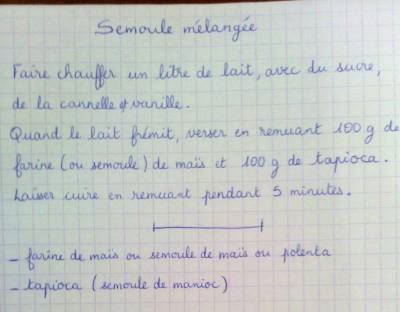 Semoule mélangée
Faire chauffer un litre de lait, avec du sucre,
de la cannelle & vanille.
Quand le lait frémit, verser en remuant 100 g de
farine (ou semoule) de maïs et 100 g de tapioca.
Laisser cuire en remuant pendant 5 minutes.
- farine de maïs ou semoule de maïs ou polenta
- tapioca (semoule de manioc)